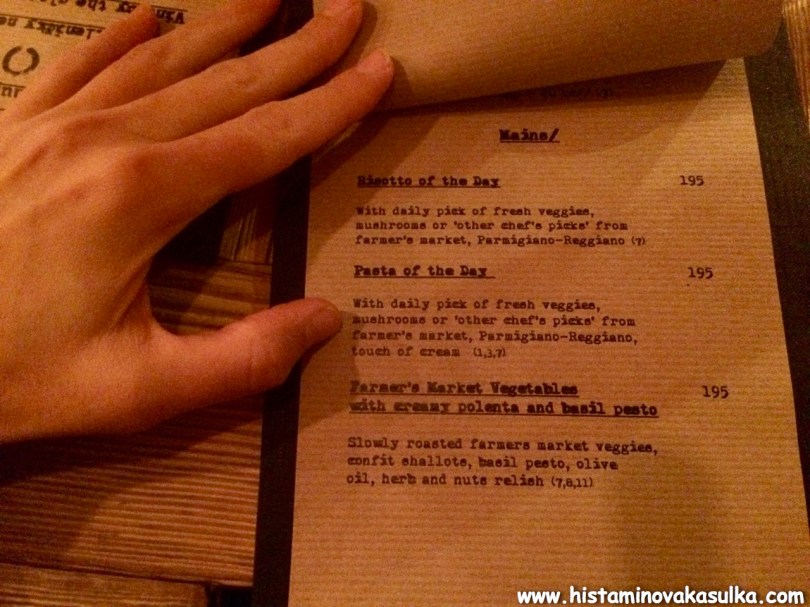 Mains/
Risotto of the Day 195
With daily pick of fresh veggies,
mushrooms or 'other chef's picks' from
farmer's market, Parmigiano-Reggiano (7)
Pasta of the Day 195
With daily pick of fresh veggies,
mushrooms or 'other chef's picks' from
farmer's market, Parmigiano-Reggiano,
touch of cream (1,3,7)
Farmer's Market Vegetables 195
with creamy polenta and basil pesto
Slowly roasted farmers market veggies,
confit shallots, basil pesto, olive
oil, herb and nuts relish (7,8,11)
www.histaminovakasulka.com